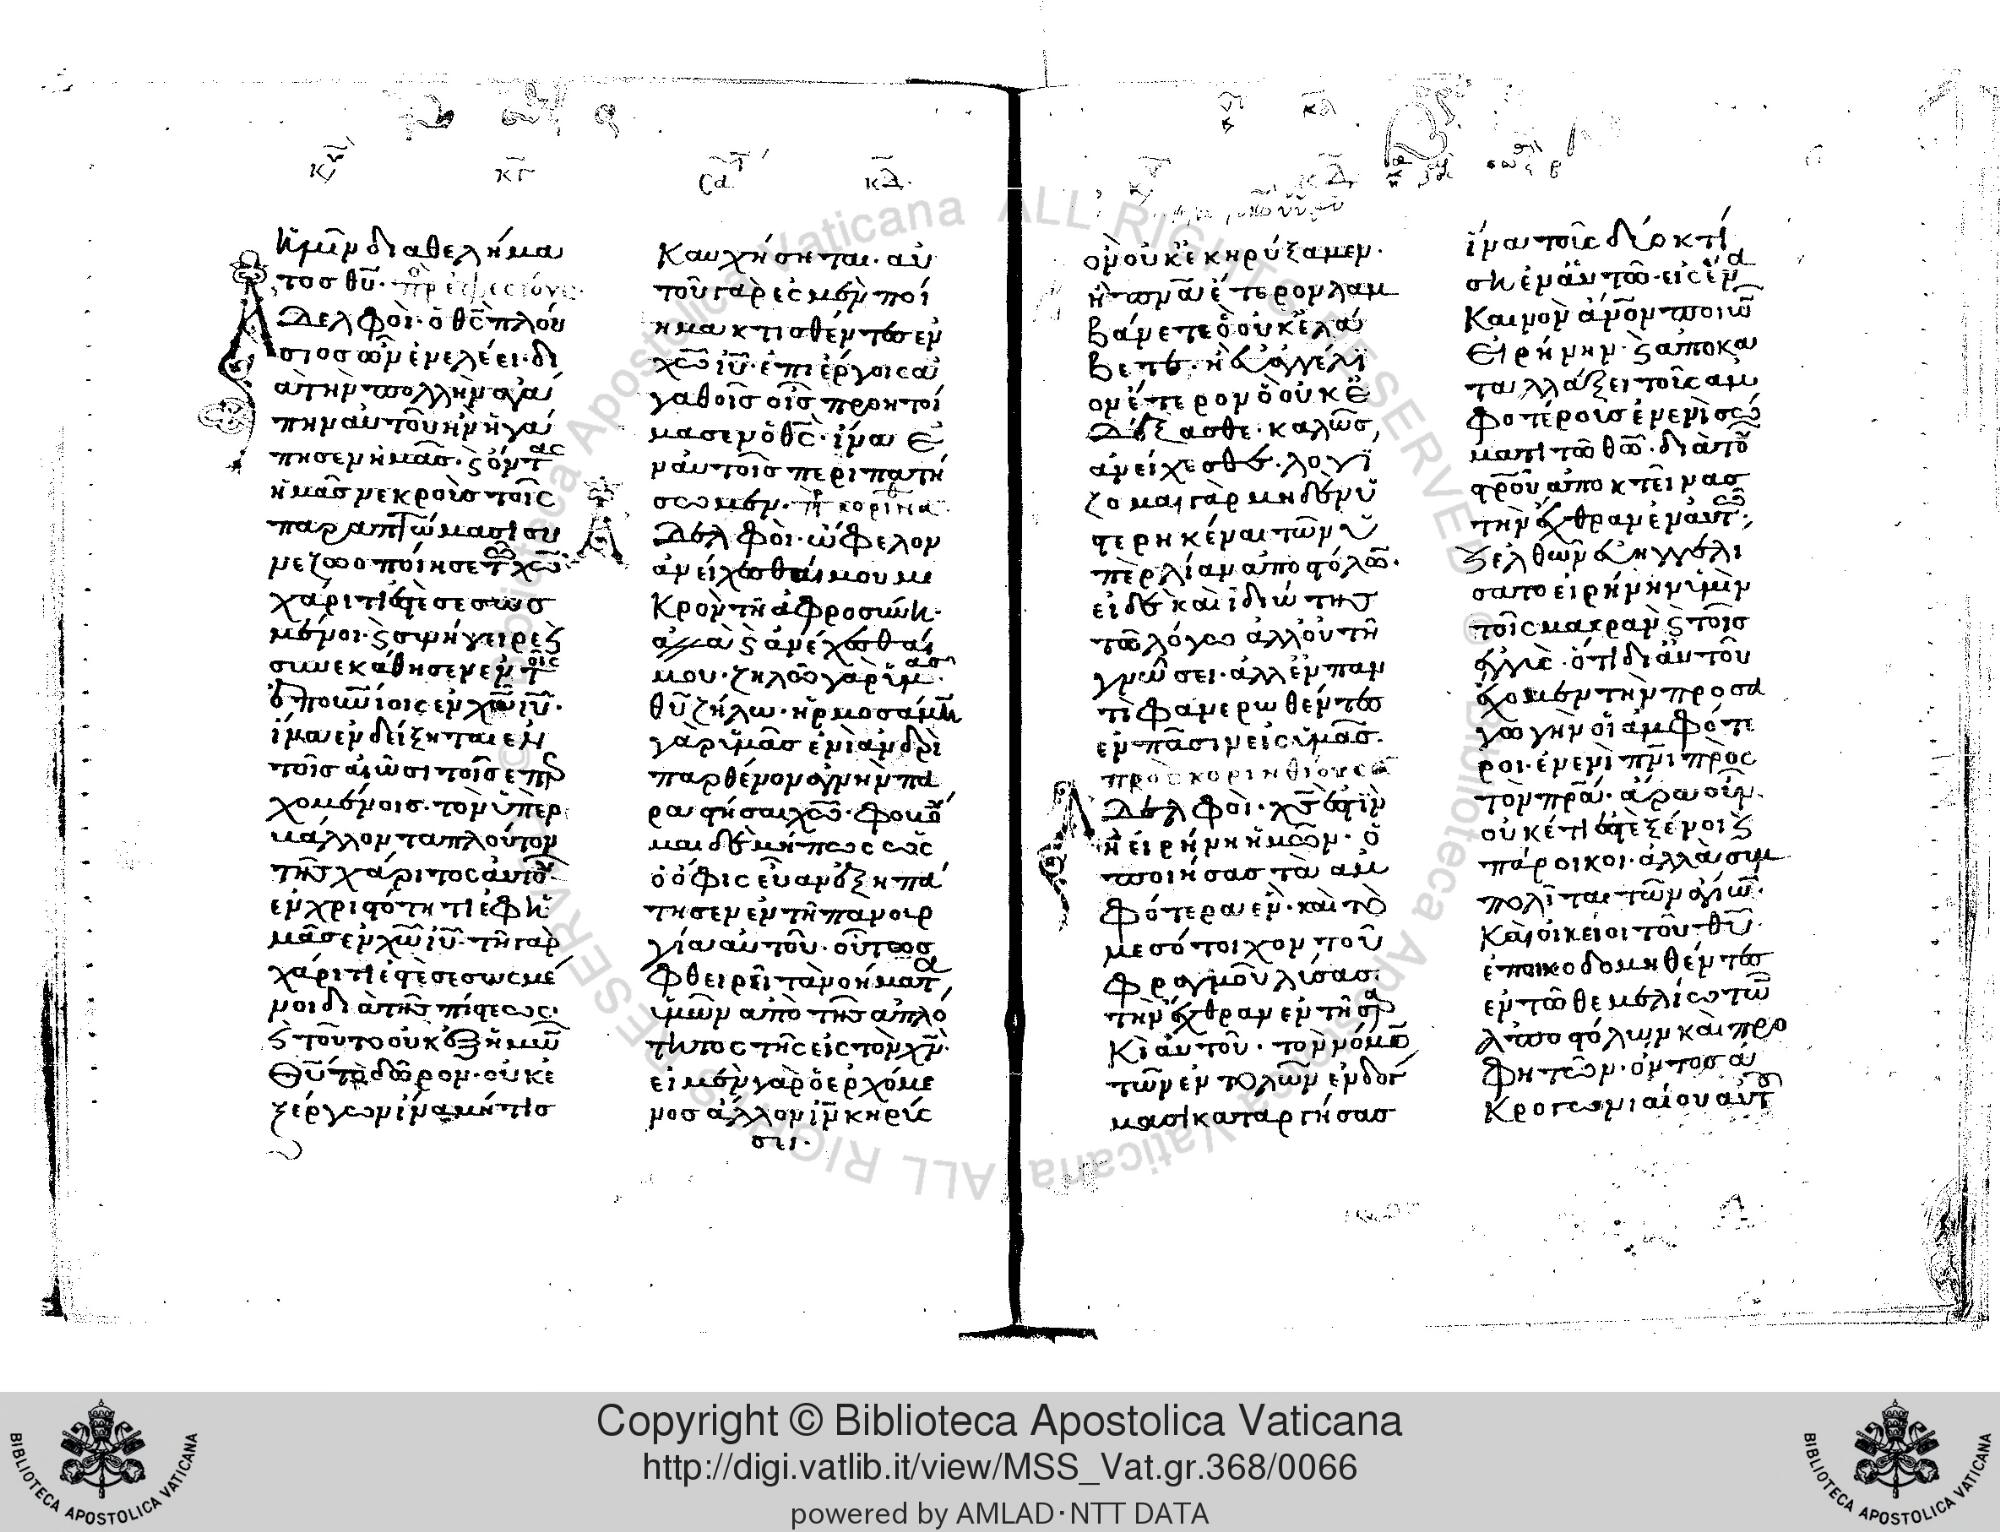 κυ κγ
ἡμῖν διὰ θελήμα
τος θυ· πρ εφεσίους·
Ἀδελφοὶ· ὁ θς πλού
σιος ὢν ἐν ἐλέει· δι
ὰ τὴν πολλὴν ἀγά
πην αὐτοῦ ἣν ἠγά
πησεν ἡμᾶς· ϗ ὄντας
ἡμᾶς νεκροὺς τοῖς
παραπτώμασι συ
νεζωοποίησε τῶ χω·
χάριτί ἐστε σεσωσ
μένοι· ϗ συνήγειρε ϗ
συνεκάθησεν ἐν τοῖς
ἐπουνίοις ἐν χω ιυ·
ἵνα ἐνδείξηται ἐν
τοῖς αἰῶσι τοῖς ἐπερ
χομένοις· τὸν ὑπερ
βάλλοντα πλοῦτον
τῆς χάριτος αὐτοῦ
ἐν χριστότητι ἐφ ἡ
μᾶς ἐν χω ιυ· τῇ γὰρ
χάριτί ἐστε σεσωσμέ
νοι διὰ τῆς πίστεως·
ϗ τοῦτο οὐκ ἐξ ἡμῶν
θυ τὸ δῶρον· οὐκ ἐ
ξ ἔργων ἵνα μή τις
σα κδ
καυχήσηται· αὐ
τοῦ γάρ ἐσμὲν ποί
ημα κτισθέντες ἐν
χω ιυ· ἐπὶ ἔργοις ἀ
γαθοῖς οἷς προητοί
μασεν ὁ θς· ἵνα ἐ
ν αὐτοῖς περιπατή
σωμεν· πρ κορινθ
Ἀδελφοὶ· ὤφελον
ἀνείχεσθαί μου μι
κρὸν τῇ ἀφροσύνη·
ἀλλὰ ϗ ἀνέχεσθαί
μου· ζηλῶ γὰρ ὑμᾶς
θυ ζήλω· ἡρμοσάμην
γὰρ ὑμᾶς ἑνὶ ἀνδρὶ
παρθένον ἁγνὴν πα
ραστῆσαι χω· φοβοῦ
μαι δὲ μή πως ὡς
ὁ ὄφις εὔαν ἐξηπά
τησεν ἐν τῇ πανουρ
γία αὐτοῦ· οὕτως
φθείρει τὰ νοήματα
ὑμῶν ἀπὸ τῆς ἁπλό
τητος τῆς εἰς τὸν χν·
εἰ μὲν γὰρ ὁ ἐρχόμε
νος ἄλλον ιν κηρύς
σει·
κδ
ὃν οὐκ ἐκηρύξαμεν·
ἢ πνα ἕτερον λαμ
βάνετε ὃ οὐκ ἐλά
βετε· ἢ εὐαγγέλι
ον ἕτερον ὃ οὐκ ἐ
δέξασθε· καλῶς
ἀνείχεσθε· λογί
ζομαι γὰρ μηδὲν ὑ
στερηκέναι τῶν ὑ
πὲρ λίαν ἀποστόλων·
εἰ δὲ καὶ ἰδιώτης
τῶ λόγω ἀλλ' οὐ τῇ
γνώσει· ἀλλ' ἐν παν
τὶ φανερωθέντες
ἐν πᾶσιν εἰς ὑμᾶς·
πρὸς κορινθίους
Ἀδελφοὶ· χς ἐστὶν
ἡ εἰρήνη ἡμῶν· ὁ
ποιήσας τὰ ἀμ
φότερα ἕν· καὶ τὸ
μεσότοιχον τοῦ
φραγμοῦ λύσας·
τὴν ἔχθραν ἐν τῇ σαρ
κὶ αὐτοῦ· τὸν νόμον
τῶν ἐντολῶν ἐν δόγ
μασι καταργήσας
ἵνα τοὺς δύο κτί
ση ἐν ἑαυτῶ· εἰς ἕνα
καινὸν ανον ποιῶν
εἰρήνην· ϗ ἀποκα
ταλλάξει τοὺς ἀμ
φοτέρους ἐν ἑνὶ σώ
ματι τῶ θω· διὰ τοῦ
στρου ἀποκτείνας
τὴν ἔχθραν ἐν αὐτῶ·
ϗ ἐλθὼν εὐηγγελί
σατο εἰρήνην ὑμὶν
τοῖς μακρὰν ϗ τοῖς
ἐγγὺς· ὅτι δι' αὐτοῦ
ἔχομεν τὴν προσα
γωγὴν οἱ ἀμφότε
ροι· ἐν ἑνὶ πνι πρὸς
τὸν πρα· ἄρα οὖν·
οὐκέτι ἐστὲ ξένοι ϗ
πάροικοι· ἀλλὰ συμ
πολῖται τῶν ἁγίων·
καὶ οἰκεῖοι τοῦ θυ·
ἐποικοδομηθέντες
ἐν τῶ θεμελίω τῶν
ἀποστόλων καὶ προ
φητῶν· ὄντος ἀ
κρογωνιαίου αὐτοῦ
Copyright © Biblioteca Apostolica Vaticana
http://digi.vatlib.it/view/MSS_Vat.gr.368/0066
powered by AMLAD·NTT DATA
BIBLIOTECA APOSTOLICA VATICANA
BIBLIOTECA APOSTOLICA VATICANA